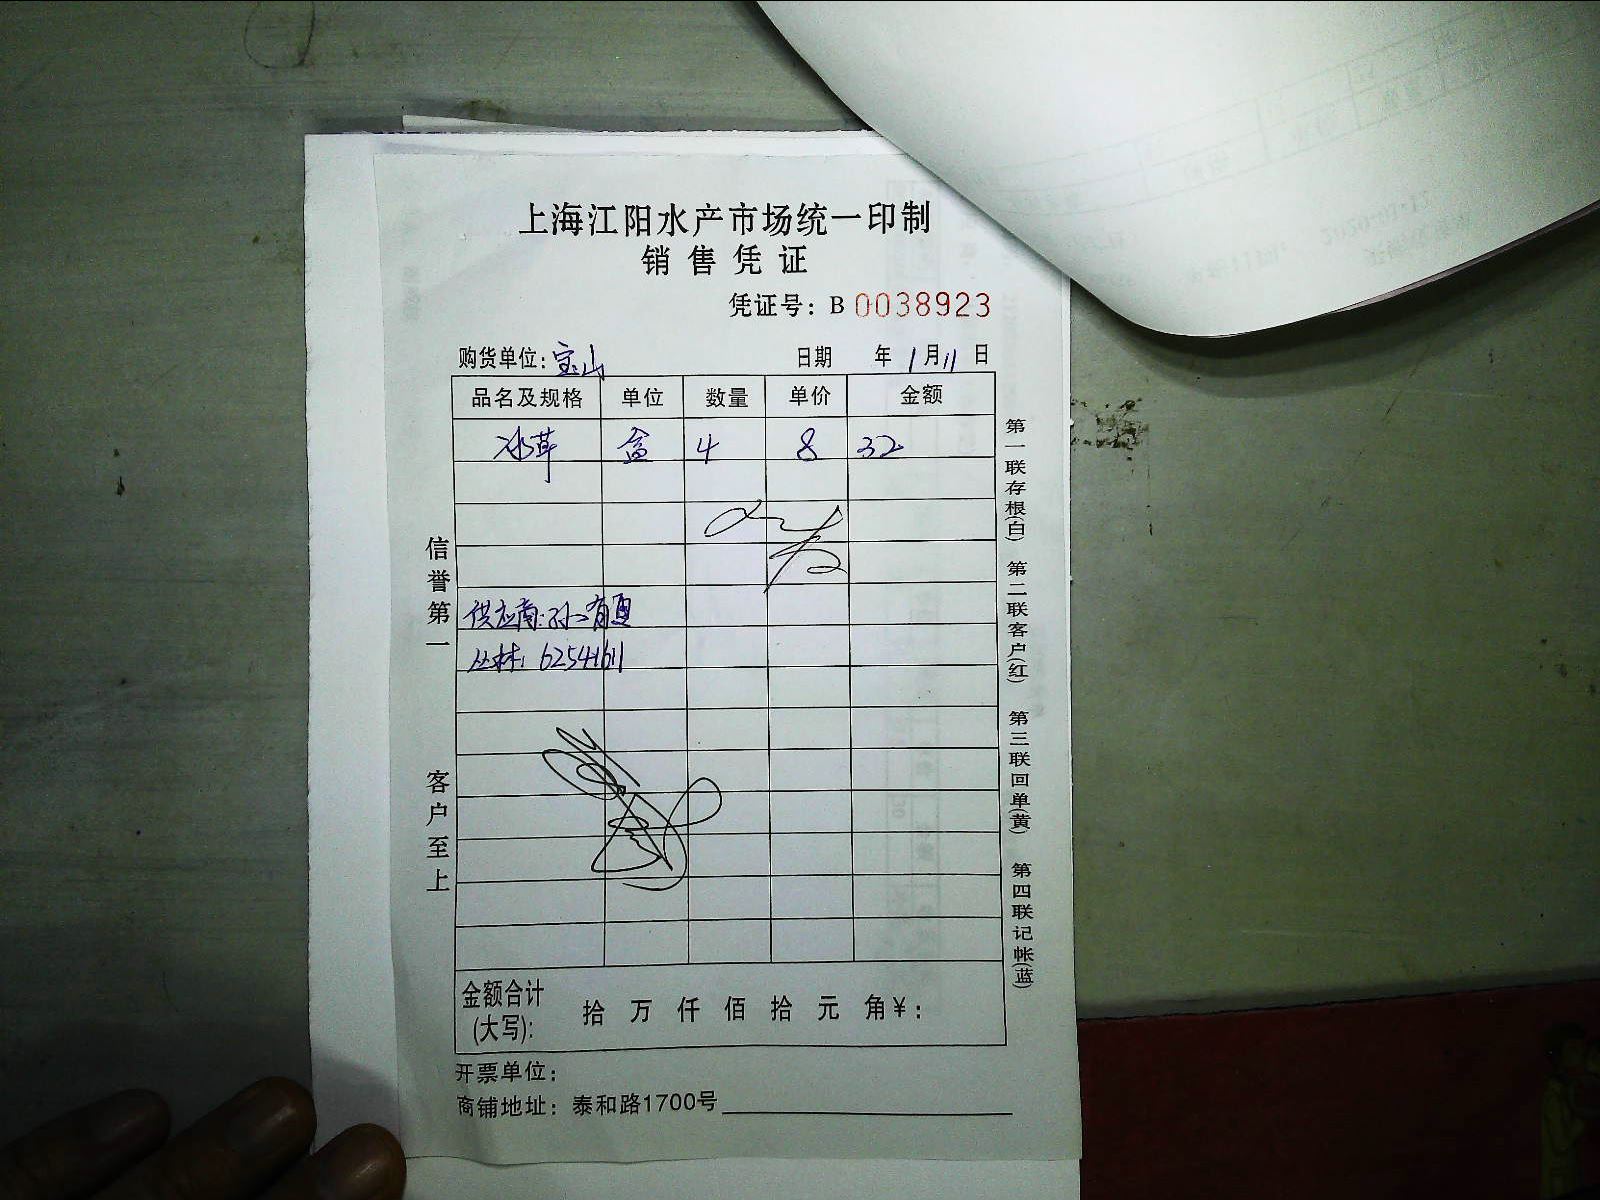 上海江阳水产市场统一印制
销售凭证
凭证号：B 0038923
购货单位：宝山 日期 年 1月11日
品名及规格 单位 数量 单价 金额
冰茸 盒 4 8 32
供应商：孙有通
丛林：62541611
金额合计
(大写)： 拾 万 仟 佰 拾 元 角¥：
开票单位：
商铺地址：泰和路1700号
信誉第一
客户至上
第一联存根(白)
第二联客户(红)
第三联回单(黄)
第四联记帐(蓝)